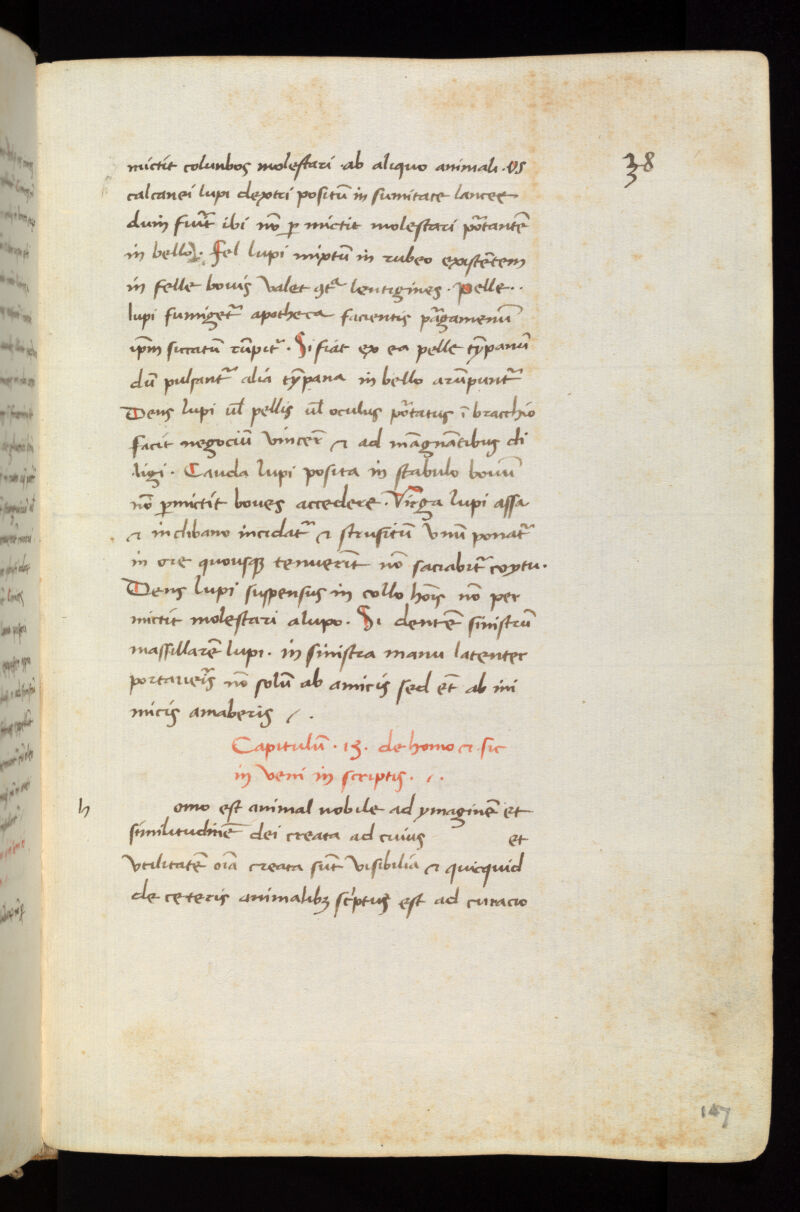 38
mictit colunbos molestari · ab aliquo animali · os
calcanei lupi dextri positū in sumitate lancee
dum fuīt ibi nō p mictit molestari portantē
in bello · Fel lupi mixtū in rubeo existētem
in felle bovis valet 9tª lentigines · Pelle ··
lupi fumiget~ apotheca facientis pgamenum̄
ipm siccatū rūpit~ · Si fiat ex ea pelle tȳpanū
dū pulsant~ alia tȳpana in bello arūpunt~
Dens lupi ul̄ pellis ul̄ oculus portatus ī bracchio
facit negociū vincer̄ & ad māgnātibus di
ligi · Cauda lupi posita in stabulo bouū
nō pmictit boves accedere · Virga lupi assa
& in clibano incidat~ & strusitū vnū ponat~
in ore quousq; tenuerīt nō saciabit~ coytu ·
Dens lupi suspensus in collo hoīs nō per
mictit molestari alupo · Si dentē sinistrū
massillarē lupi · in sinistra manu latenter
portaueris nō solū ab amicis sed ēt ab ini
micis amaberis /.
Capitulū · 13 · de homo & sic
in veni in scriptis · /.
h omo est animal nobile ad ymaginē et
similitudinē dei creata ad cuius et
vtilitatē oīa creata sūt visibilia & quicquid
de ceteris animalib; scptus est ad curacio
147